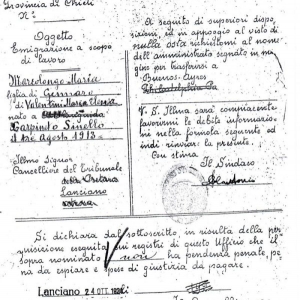 Provincia di Chieti
N.
Oggetto
Emigrazione a scopo
di lavoro
Marcolongo Maria
figlia di Gennaro
di Valentini Maria
nato a
Carpineto Sinello
il tre Agosto 1913
Illmo Signor
Cancelliere del Tribunale
Lanciano
A seguito di superiori dispo
sizioni, ed in appoggio al visto di
nulla osta richiestomi al nome
dell'amministrato segnato in mar
gine per trasferirsi a
Buenos Ayres
V. S. Illma sarà compiacente
favorirmi le debite informazio
ni nella formola seguente ed
indi rinviar la presente.
Con stima
Il Sindaco
Si dichiara dal sottoscritto, in risulta della per
quisizione eseguita sui registri di questo Ufficio che il
sopra nominato non ha pendenza penale, pe
na da espiare e spese di giustizia da pagare.
Lanciano 24 OTT.